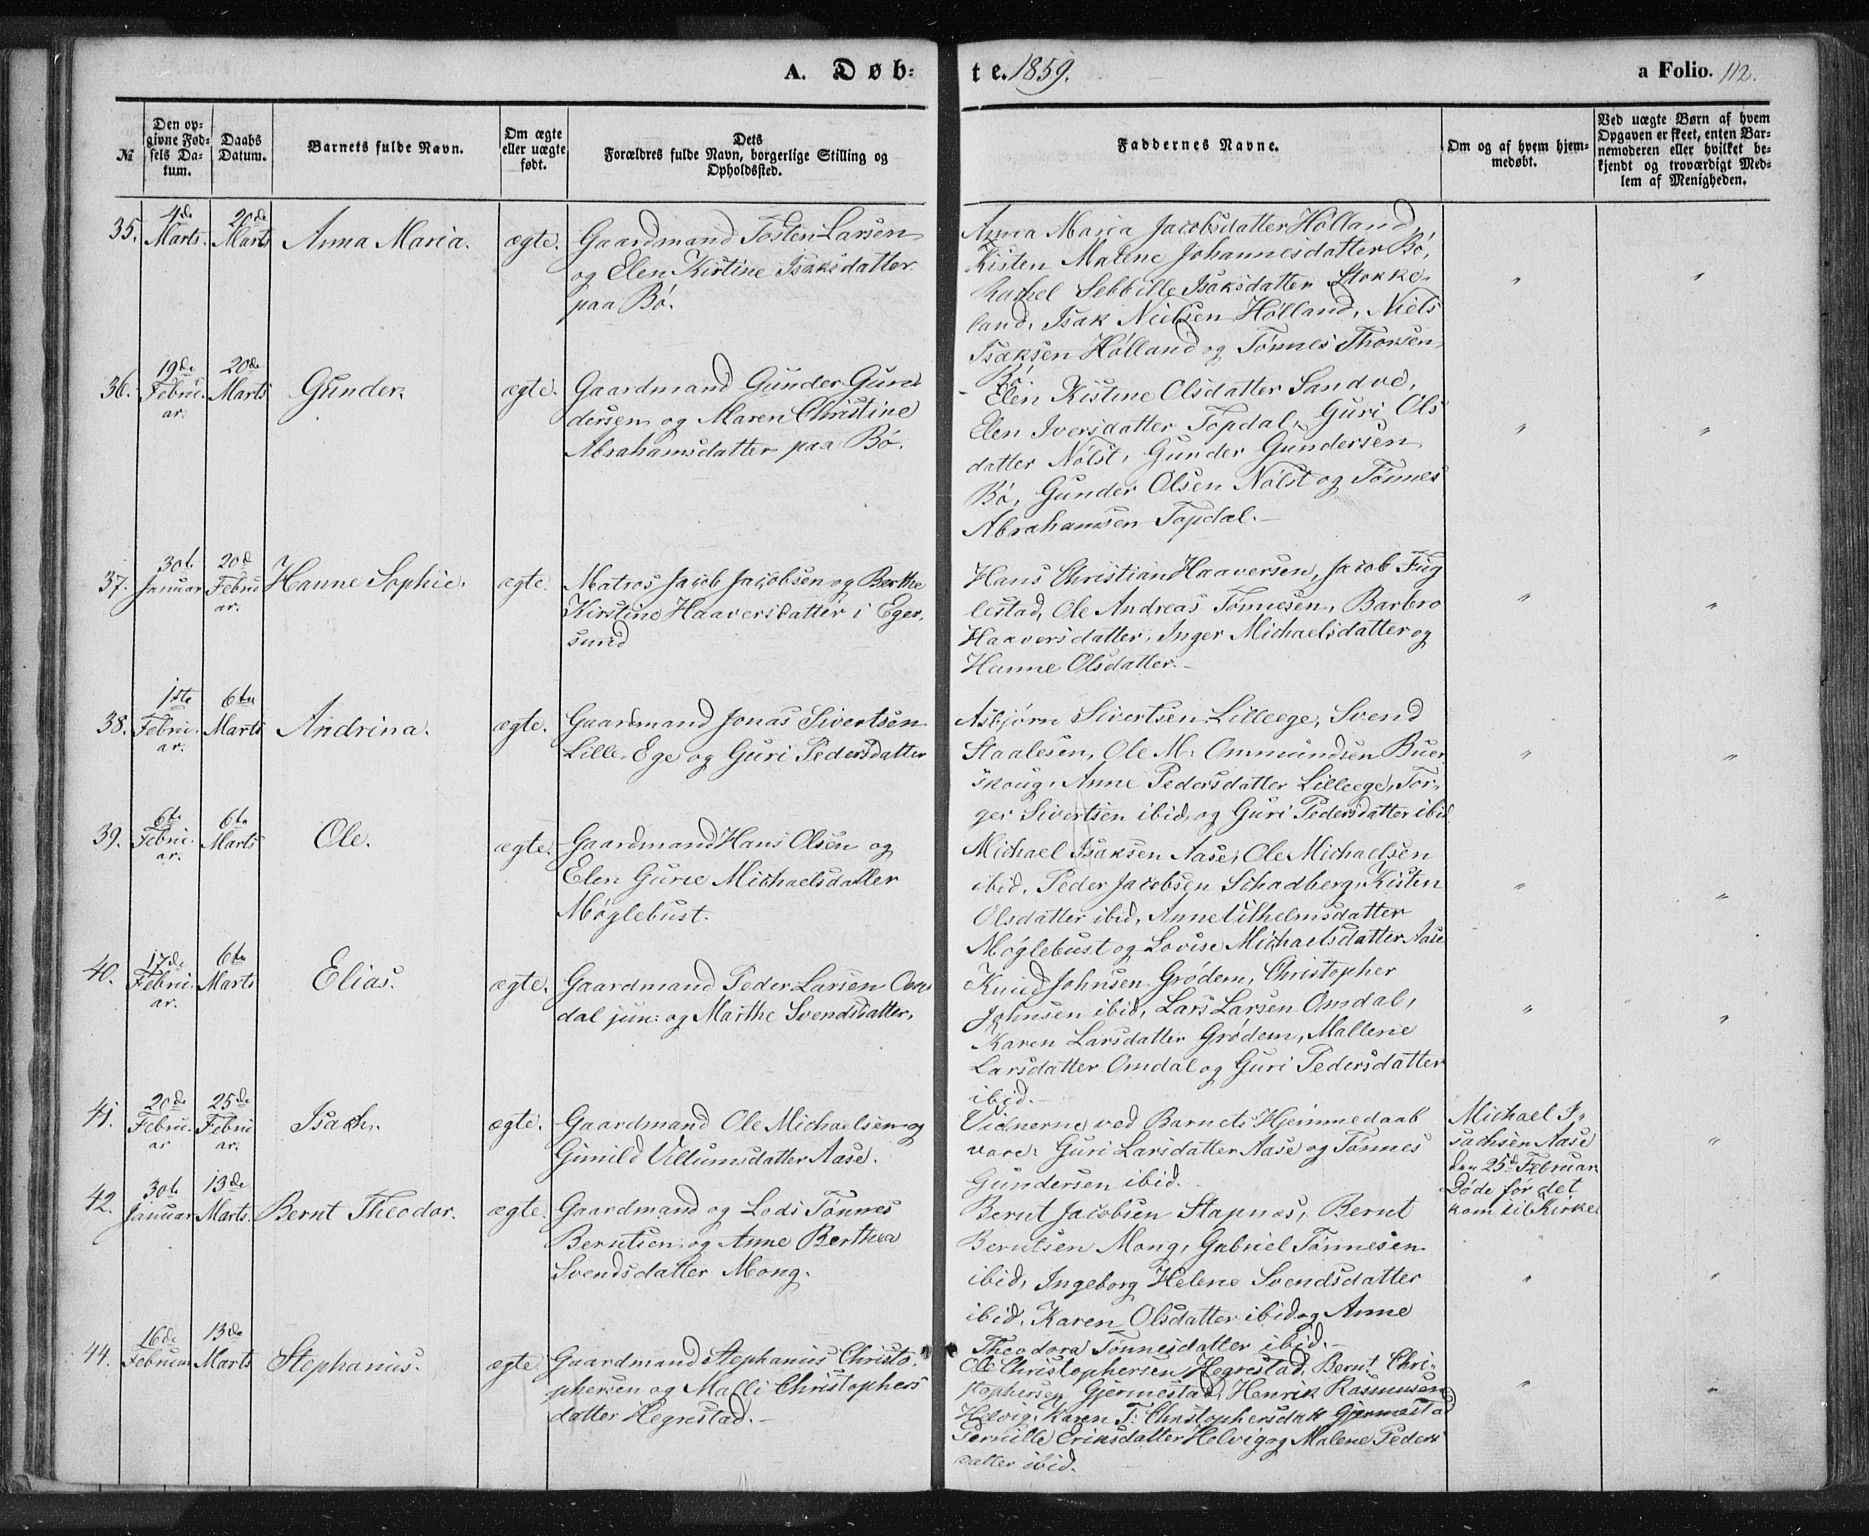 A. Døb-
te. 1859.
a Folio. 112.
№
Den op-
givne Fød-
sels Da-
tum.
Daabs
Datum.
Barnets fulde Navn.
Om ægte
eller uægte
født.
Dets
Forældres fulde Navn, borgerlige Stilling og
Opholdssted.
Faddernes Navne.
Om og af hvem hjem-
medøbt.
Ved uægte Børn af hvem
Opgaven er skeet, enten Bar-
nemoderen eller hvilket be-
kjendt og troværdigt Med-
lem af Menigheden.
35.
4de
Marts.
20de
Marts
Anna Maria.
ægte.
Gaardmand Tosten Larsen
og Elen Kirstine Isaksdatter
paa Bø.
Anna Maria Jacobsdatter Hølland,
Kisten Malene Johannesdatter Bø,
Rachel Sebbille Isaksdatter Stokke-
land, Isak Nielsen Hølland, Niels
Isaksen Hølland og Tønnes Thorsen
Bø.
"
"
36.
19de
Febru-
ar.
20de
Marts
Gunder.
ægte.
Gaardmand Gunder Gun-
dersen og Maren Christine
Abrahamsdatter paa Bø.
Elen Kistine Olsdatter Sandve,
Elen Iversdatter Topdal, Guri Ols
datter Nølst, Gunder Gundersen
Bø, Gunder Olsen Nølst og Tønnes
Abrahamsen Topdal.-
"
"
37.
30t
Januar
20d
Febru
ar.
Hanne Sophie.
ægte.
Matros Jacob Jacobsen og Berthe
Kirstine Haaversdatter i Eger-
sund
Hans Christian Haaversen, Jacob Fug
lestad, Ole Andreas Tønnesen, Barbro
Haaversdatter, Inger Michaelsdatter og
Hanne Olsdatter.-
"
"
38.
1ste
Febru-
ar.
6te
Marts
Andrina.
ægte.
Gaardmand Jonas Sivertsen
Lille-Ege og Guri Pedersdatter
Asbjørn Sivertsen Lilleege, Svend
Staalesen, Ole M: Ommundsen Buer-
skoug, Anne Pedersdatter Lilleege, Tor-
ger Sivertsen ibid, og Guri Pedersdatter ibid
"
"
39.
6te
Febru-
ar.
6te
Marts
Ole.
ægte.
Gaardmand Hans Olsen og
Elen Gurie Michaelsdatter
Møglebust.
Michael Isaksen Aase, Ole Michaelsen
ibid, Peder Jacobsen Schadberg, Kisten
Olsdatter ibid, Anne Vilhelmsdatter
Møglebust og Lovise Michaelsdatter Aase
"
"
40.
17de
Febru-
ar.
6te
Marts
Elias.
ægte.
Gaardmand Peder Larsen Om-
dal jun: og Marthe Svendsdatter,
Knud Johnsen Grødem, Christopher
Johnsen ibid, Lars Larsen Omdal,
Karen Larsdatter Grødem, Mallene
Larsdatter Omdal og Guri Pedersdatter
ibid.-
"
"
41.
20de
Febru-
ar
25de
Febru
ar.
Isach.
ægte.
Gaardmand Ole Michaelsen og
Gunild Villumsdatter Aase.
Vidnerne ved Barnets Hjemmedaab
vare: Guri Larsdatter Aase og Tønnes
Gundersen ibid.
Michael I-
sachsen Aase
den 25de Februar
Døde før det
kom til Kirke
"
42.
30t
Januar
13de
Marts.
Bernt Theodor.
ægte.
Gaardmand og Lods Tønnes
Berntsen og Anne Berthea
Svendsdatter Mong.
Bernt Jacobsen Stapnes, Bernt
Berntsen Mong, Gabriel Tønnesen
ibid, Ingeborg Helene Svendsdatter
ibid, Karen Olsdatter ibid og Anne
Theodora Tønnesdatter ibid.-
"
"
44.
16de
Februar
13de
Marts
Stephanus.
ægte
Gaardmand Stephanus Christo-
phersen og Malli Christophers
datter Hegrestad.-
Ole Christophersen Hegrestad, Bernt Chri-
stophersen Gjermestad, Henrik Rasmussen
Helvig, Karen T: Christophersdatt Gjermestad
Pernille Eriksdatter Helvig og Malene Peders
datter ibid.
"
"